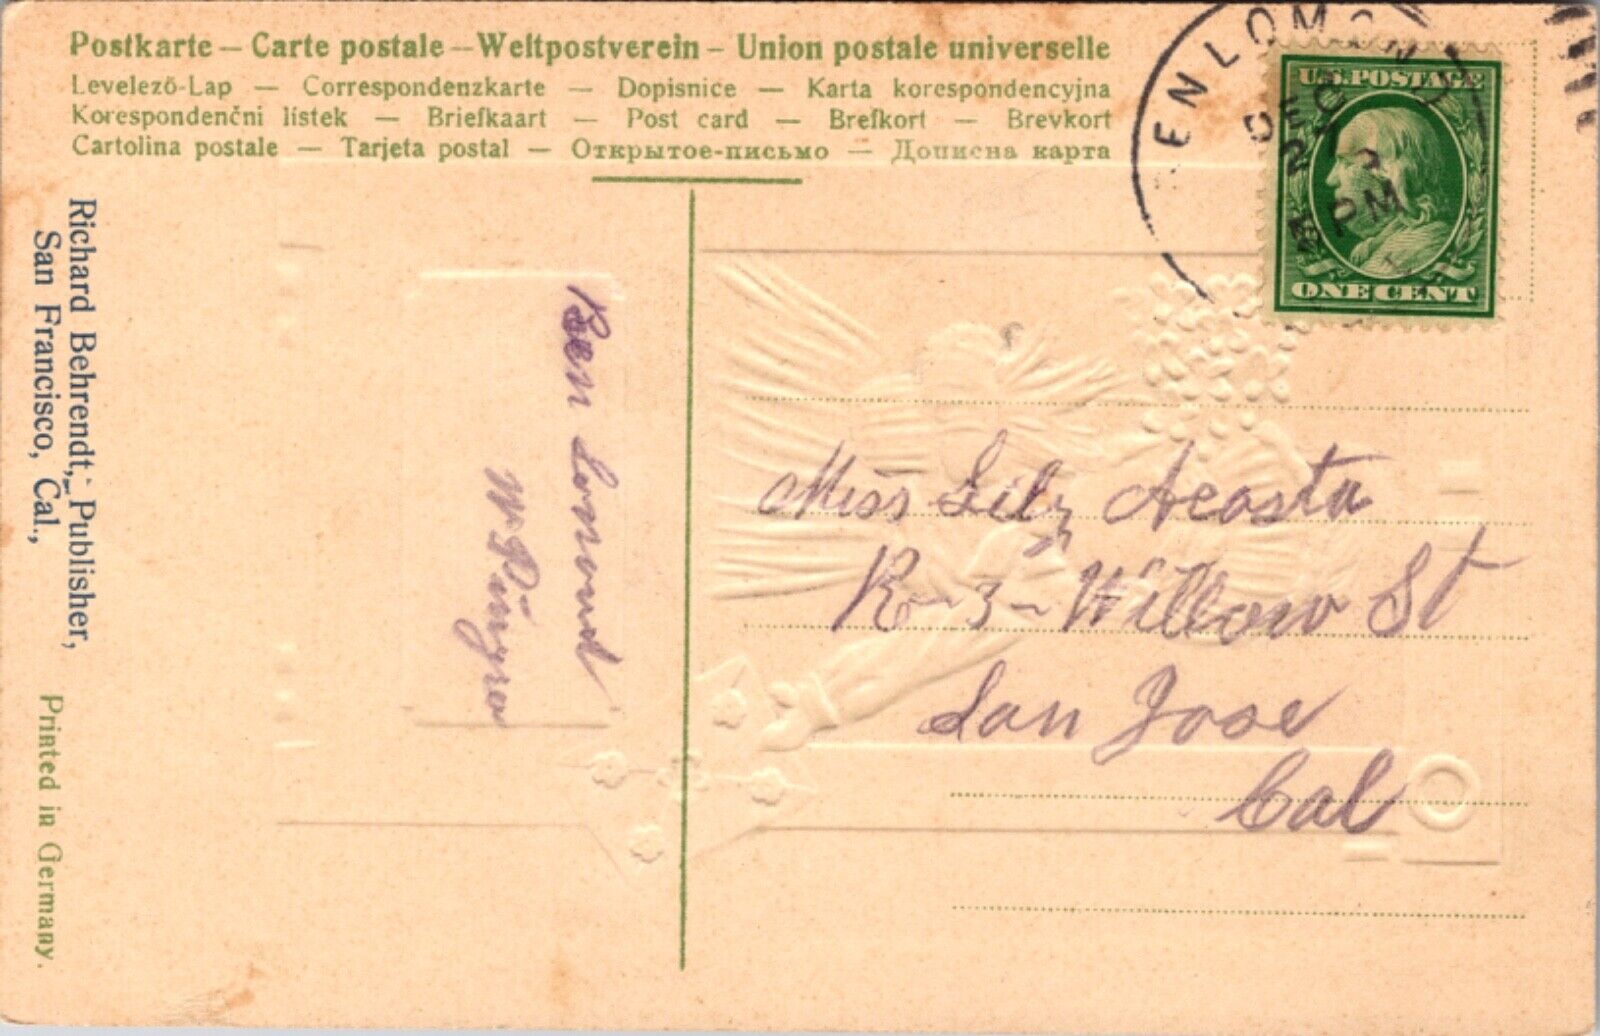 Postkarte – Carte postale – Weltpostverein – Union postale universelle
Levelező-Lap — Correspondenzkarte — Dopisnice — Karta korespondencyjna
Korespondenčni listek — Briefkaart — Post card — Brefkort — Brevkort
Cartolina postale — Tarjeta postal — Открытое-письмо — Дописна карта
ENLOMOND
DEC
PM
U.S. POSTAGE
ONE CENT
Richard Behrendt, Publisher,
San Francisco, Cal.,
Printed in Germany.
Ben Lomond
Miss Lily Acosta
R-3-Willow St
San Jose
Cal